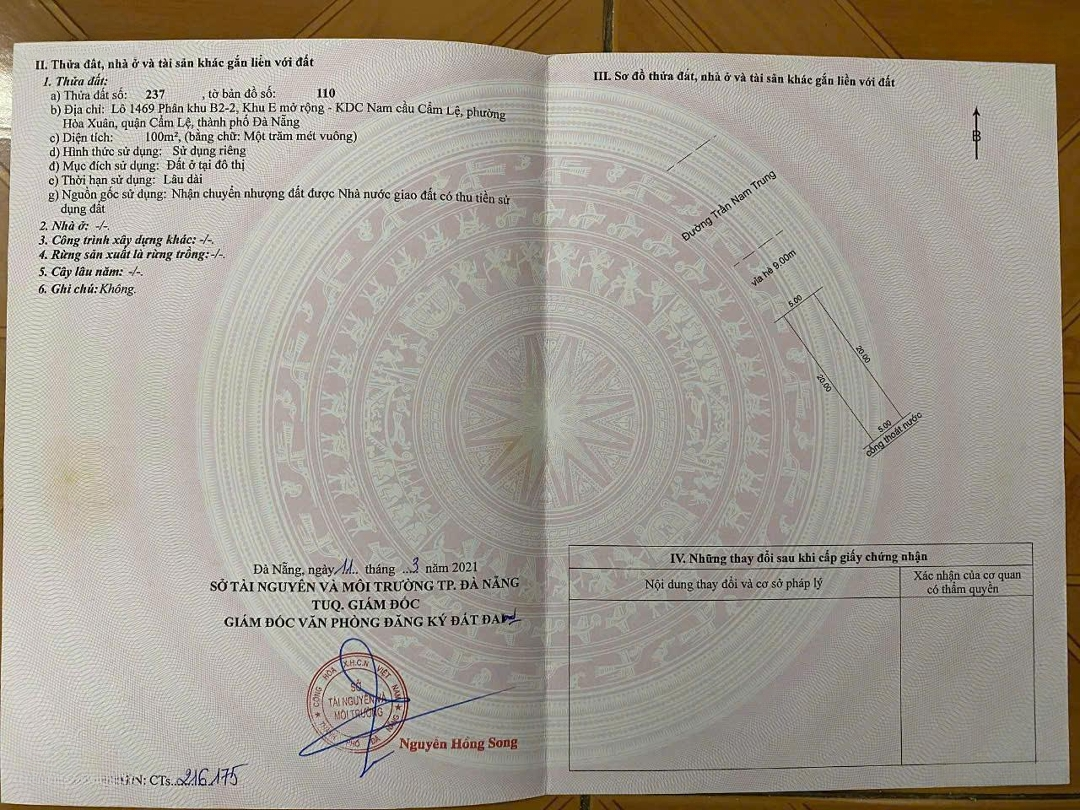 II. Thửa đất, nhà ở và tài sản khác gắn liền với đất
1. Thửa đất:
a) Thửa đất số: 237 , tờ bản đồ số: 110
b) Địa chỉ: Lô 1469 Phân khu B2-2, Khu E mở rộng - KDC Nam cầu Cẩm Lệ, phường
Hòa Xuân, quận Cẩm Lệ, thành phố Đà Nẵng
c) Diện tích: 100m², (bằng chữ: Một trăm mét vuông)
d) Hình thức sử dụng: Sử dụng riêng
đ) Mục đích sử dụng: Đất ở tại đô thị
e) Thời hạn sử dụng: Lâu dài
g) Nguồn gốc sử dụng: Nhận chuyển nhượng đất được Nhà nước giao đất có thu tiền sử
dụng đất
2. Nhà ở: -/-
3. Công trình xây dựng khác: -/-.
4. Rừng sản xuất là rừng trồng:-/-.
5. Cây lâu năm: -/-.
6. Ghi chú: Không.
Đà Nẵng, ngày 11 tháng 3 năm 2021
SỞ TÀI NGUYÊN VÀ MÔI TRƯỜNG TP. ĐÀ NẴNG
TUQ. GIÁM ĐỐC
GIÁM ĐỐC VĂN PHÒNG ĐĂNG KÝ ĐẤT ĐAI
CỘNG HÒA X.H.C.N VIỆT NAM
SỞ
TÀI NGUYÊN VÀ
MÔI TRƯỜNG
THÀNH PHỐ ĐÀ NẴNG
Nguyễn Hồng Song
CTs 216.175
III. Sơ đồ thửa đất, nhà ở và tài sản khác gắn liền với đất
B
Đường Trần Nam Trung
vỉa hè 9.00m
5.00
20.00
20.00
5.00
cống thoát nước
IV. Những thay đổi sau khi cấp giấy chứng nhận
Nội dung thay đổi và cơ sở pháp lý
Xác nhận của cơ quan
có thẩm quyền